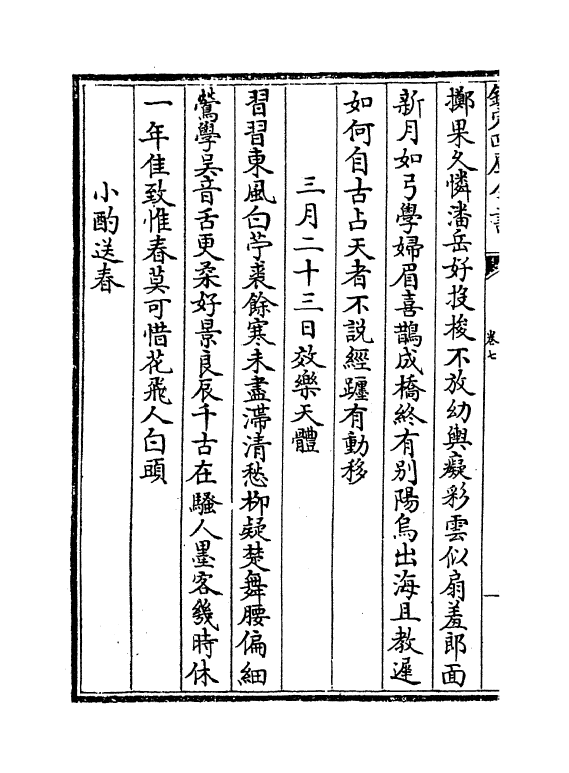 欽定四庫全書
卷七
擲果久憐潘岳好投梭不放幼輿癡彩雲似扇羞郎面
新月如弓學婦眉喜鵲成橋終有别陽烏出海且教遲
如何自古占天者不説經躔有動移
三月二十三日效樂天體
習習東風白苧裘餘寒未盡滯清愁栁疑楚舞腰偏細
鶯學吳音舌更柔好景良辰千古在騷人墨客幾時休
一年佳致惟春莫可惜花飛人白頭
小酌送春